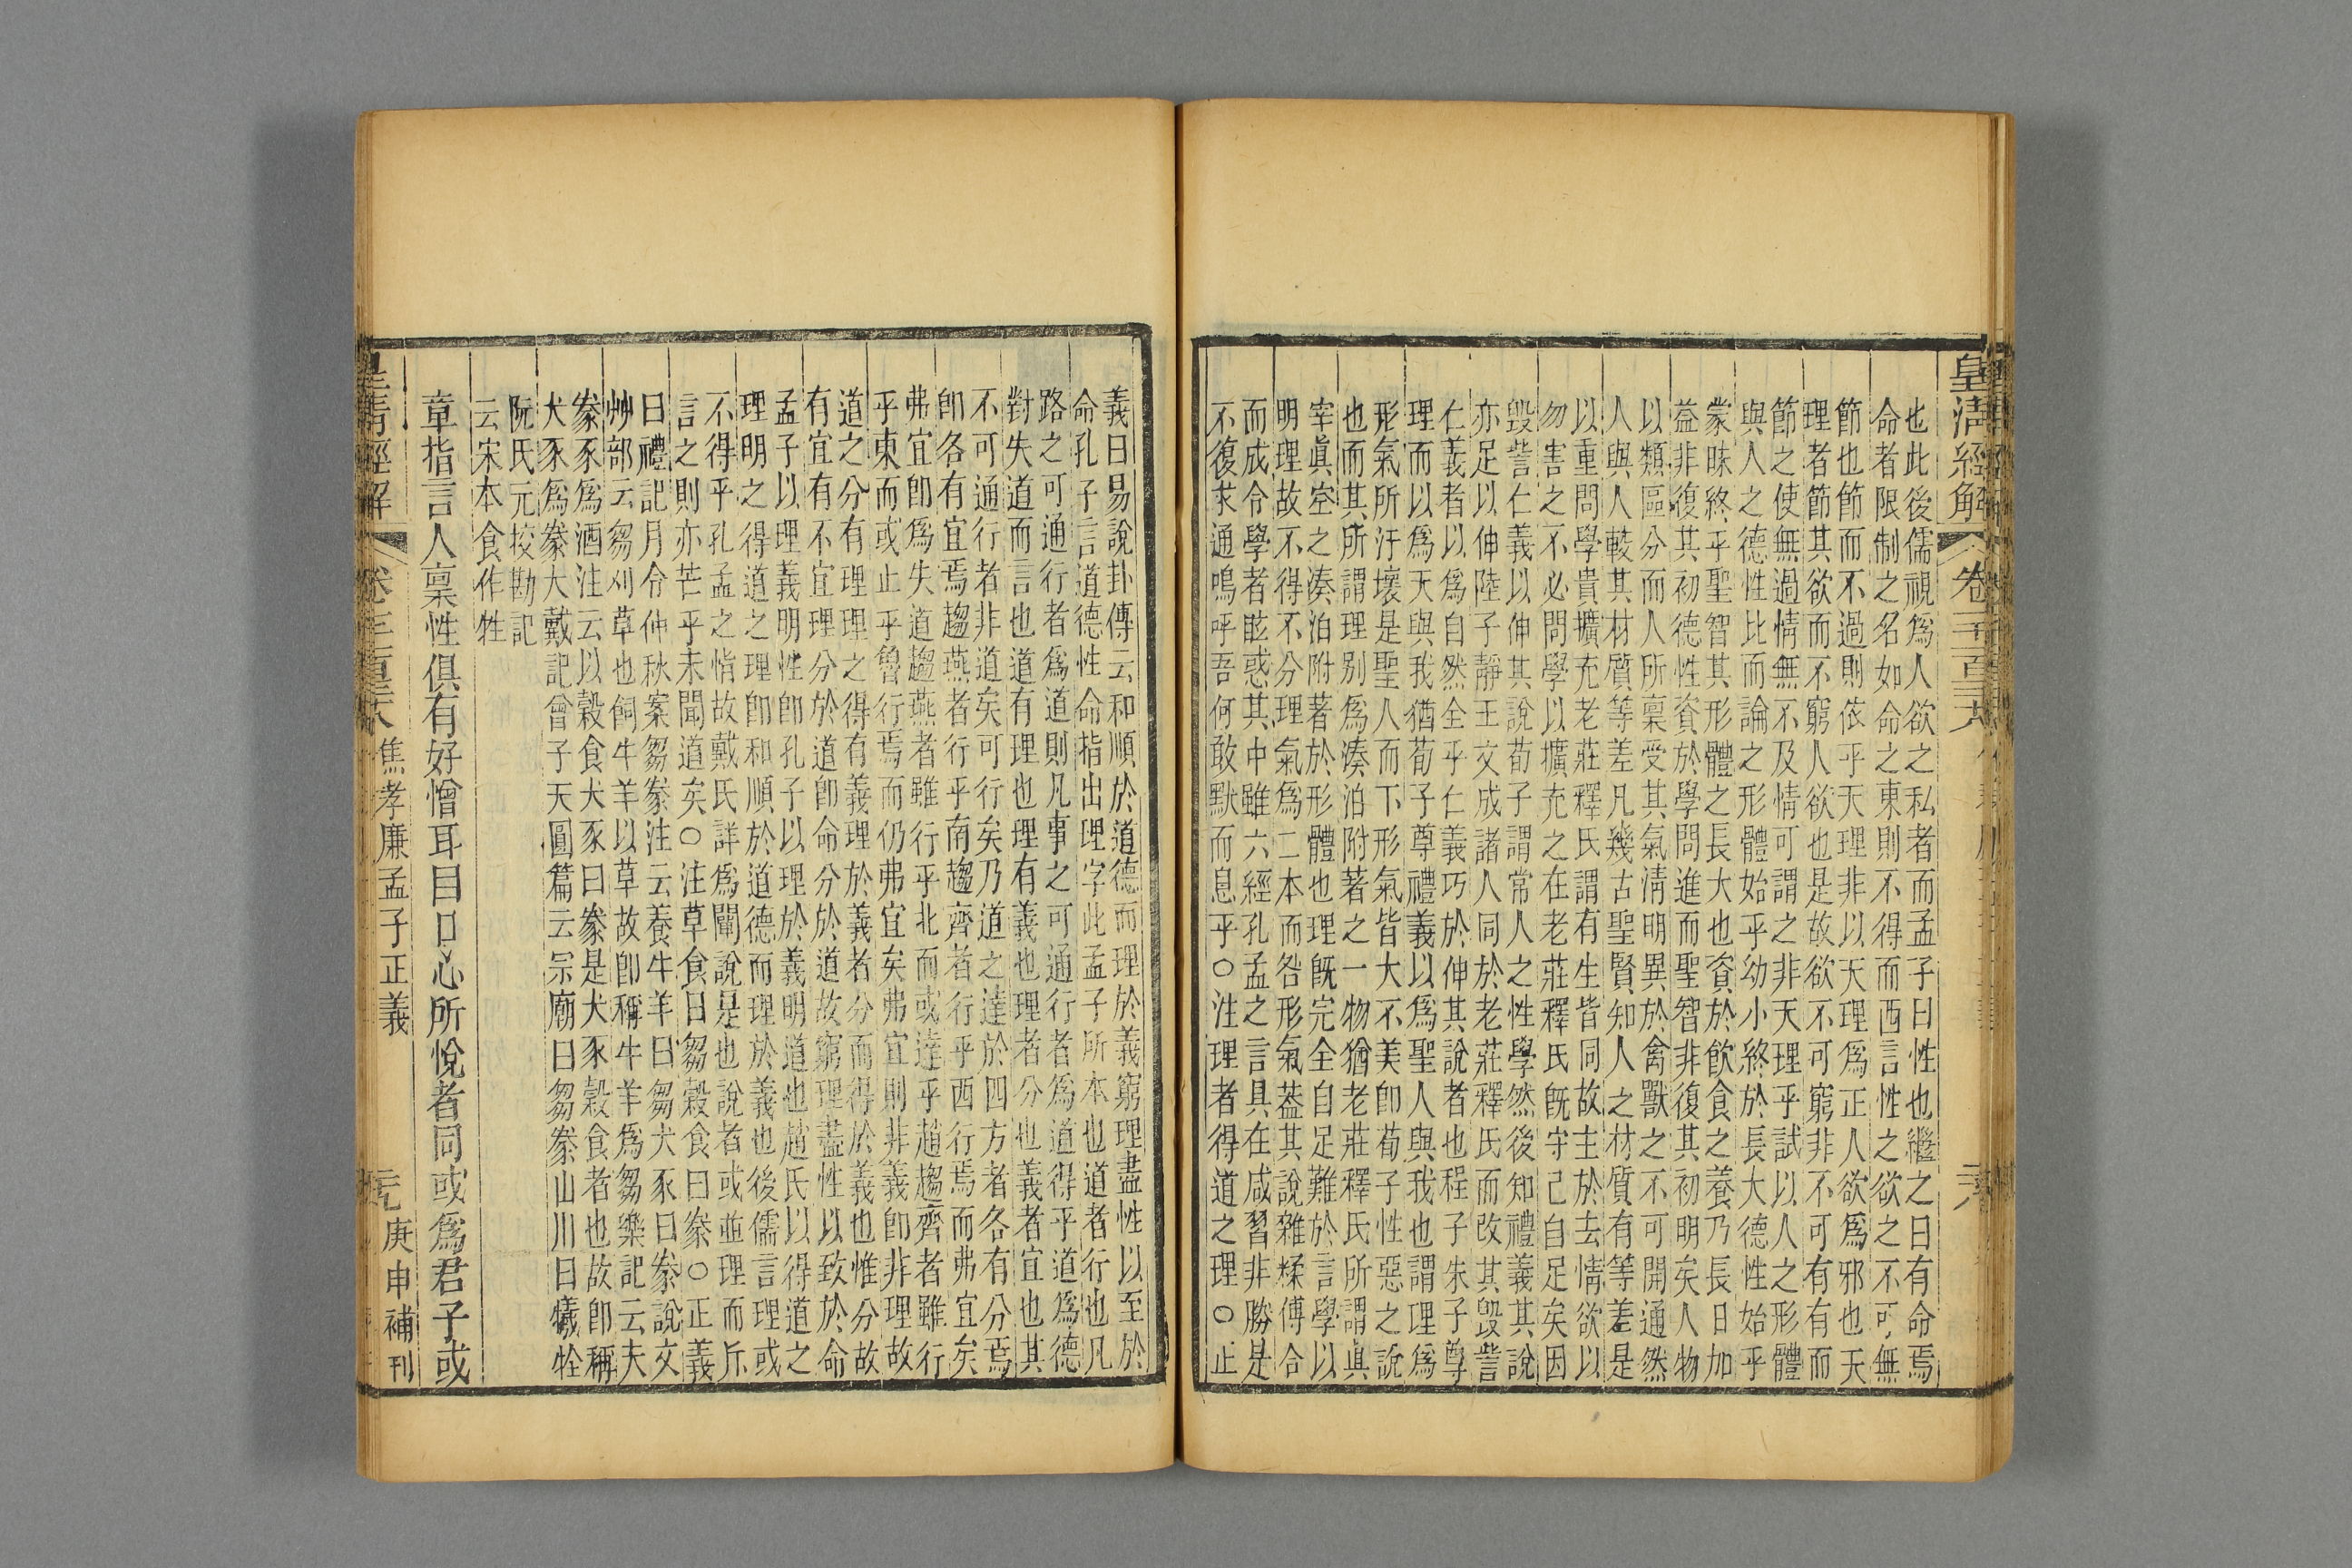 皇淸經解
卷一千一百三十六
二十八
也此後儒視爲人欲之私者而孟子曰性也繼之曰有命焉
命者限制之名如命之東則不得而西言性之欲之不可無
節也節而不過則依乎天理非以天理爲正人欲爲邪也天
理者節其欲而不窮人欲也是故欲不可窮非不可有有而
節之使無過情無不及情可謂之非天理乎試以人之形體
與人之德性比而論之形體始乎幼小終於長大德性始乎
蒙昧終乎聖智其形體之長大也資於飮食之養乃長日加
益非復其初德性資於學問進而聖智非復其初明矣人物
以類區分而人所稟受其氣淸明異於禽獸之不可開通然
人與人較其材質等差凡幾古聖賢知人之材質有等差是
以重問學貴擴充老莊釋氏謂有生皆同故主於去情欲以
勿害之不必問學以擴充之在老莊釋氏旣守己自足矣因
毀訾仁義以伸其說荀子謂常人之性學然後知禮義其說
亦足以伸陸子靜王文成諸人同於老莊釋氏而改其毀訾
仁義者以爲自然全乎仁義巧於伸其說者也程子朱子尊
理而以爲天與我猶荀子尊禮義以爲聖人與我也謂理爲
形氣所汙壞是聖人而下形氣皆大不美卽荀子性惡之說
也而其所謂理別爲湊泊附著之一物猶老莊釋氏所謂眞
宰眞空之湊泊附著於形體也理旣完全自足難於言學以
明理故不得不分理氣爲二本而咎形氣葢其說雜糅傅合
而成令學者眩惑其中雖六經孔孟之言具在咸習非勝是
不復求通嗚呼吾何敢默而息乎○注理者得道之理○正
義曰易說卦傳云和順於道德而理於義窮理盡性以至於
命孔子言道德性命指出理字此孟子所本也道者行也凡
路之可通行者爲道則凡事之可通行者爲道得乎道爲德
對失道而言也道有理也理有義也理者分也義者宜也其
不可通行者非道矣可行矣乃道之達於四方者各有分焉
卽各有宜焉趨燕者行乎南趨齊者行乎西行焉而弗宜矣
弗宜卽爲失道趨燕者雖行乎北而或達乎趙趨齊者雖行
乎東而或止乎魯行焉而仍弗宜矣弗宜則非義卽非理故
道之分有理理之得有義理於義者分而得於義也惟分故
有宜有不宜理分於道卽命分於道故窮理盡性以致於命
孟子以理義明性卽孔子以理於義明道也趙氏以得道之
理明之得道之理卽和順於道德而理於義也後儒言理或
不得乎孔孟之恉故戴氏詳爲闡說是也說者或並理而斥
言之則亦芒乎未聞道矣○注草食曰芻穀食曰豢○正義
曰禮記月令仲秋案芻豢注云養牛羊曰芻犬豕曰豢說文
艸部云芻刈草也飼牛羊以草故卽稱牛羊爲芻樂記云夫
豢豕爲酒注云以穀食犬豕曰豢是犬豕穀食者也故卽稱
犬豕爲豢大戴記曾子天圓篇云宗廟曰芻豢山川曰犧牷
阮氏元挍勘記
云宋本食作牲
章指言人稟性俱有好憎耳目口心所悅者同或爲君子或
皇清經解
卷一千一百三十六
焦孝廉孟子正義
二十九
庚申補刊